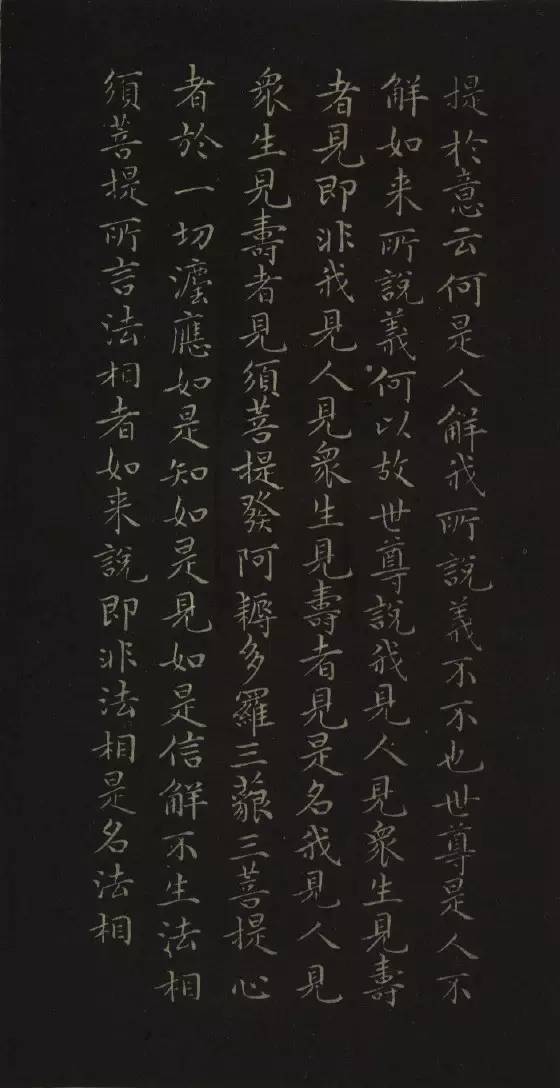 提於意云何是人解我所說義不不也世尊是人不
解如来所說義何以故世尊說我見人見衆生見壽
者見即非我見人見衆生見壽者見是名我見人見
衆生見壽者見須菩提發阿耨多羅三藐三菩提心
者於一切灋應如是知如是見如是信解不生法相
須菩提所言法相者如来說即非法相是名法相